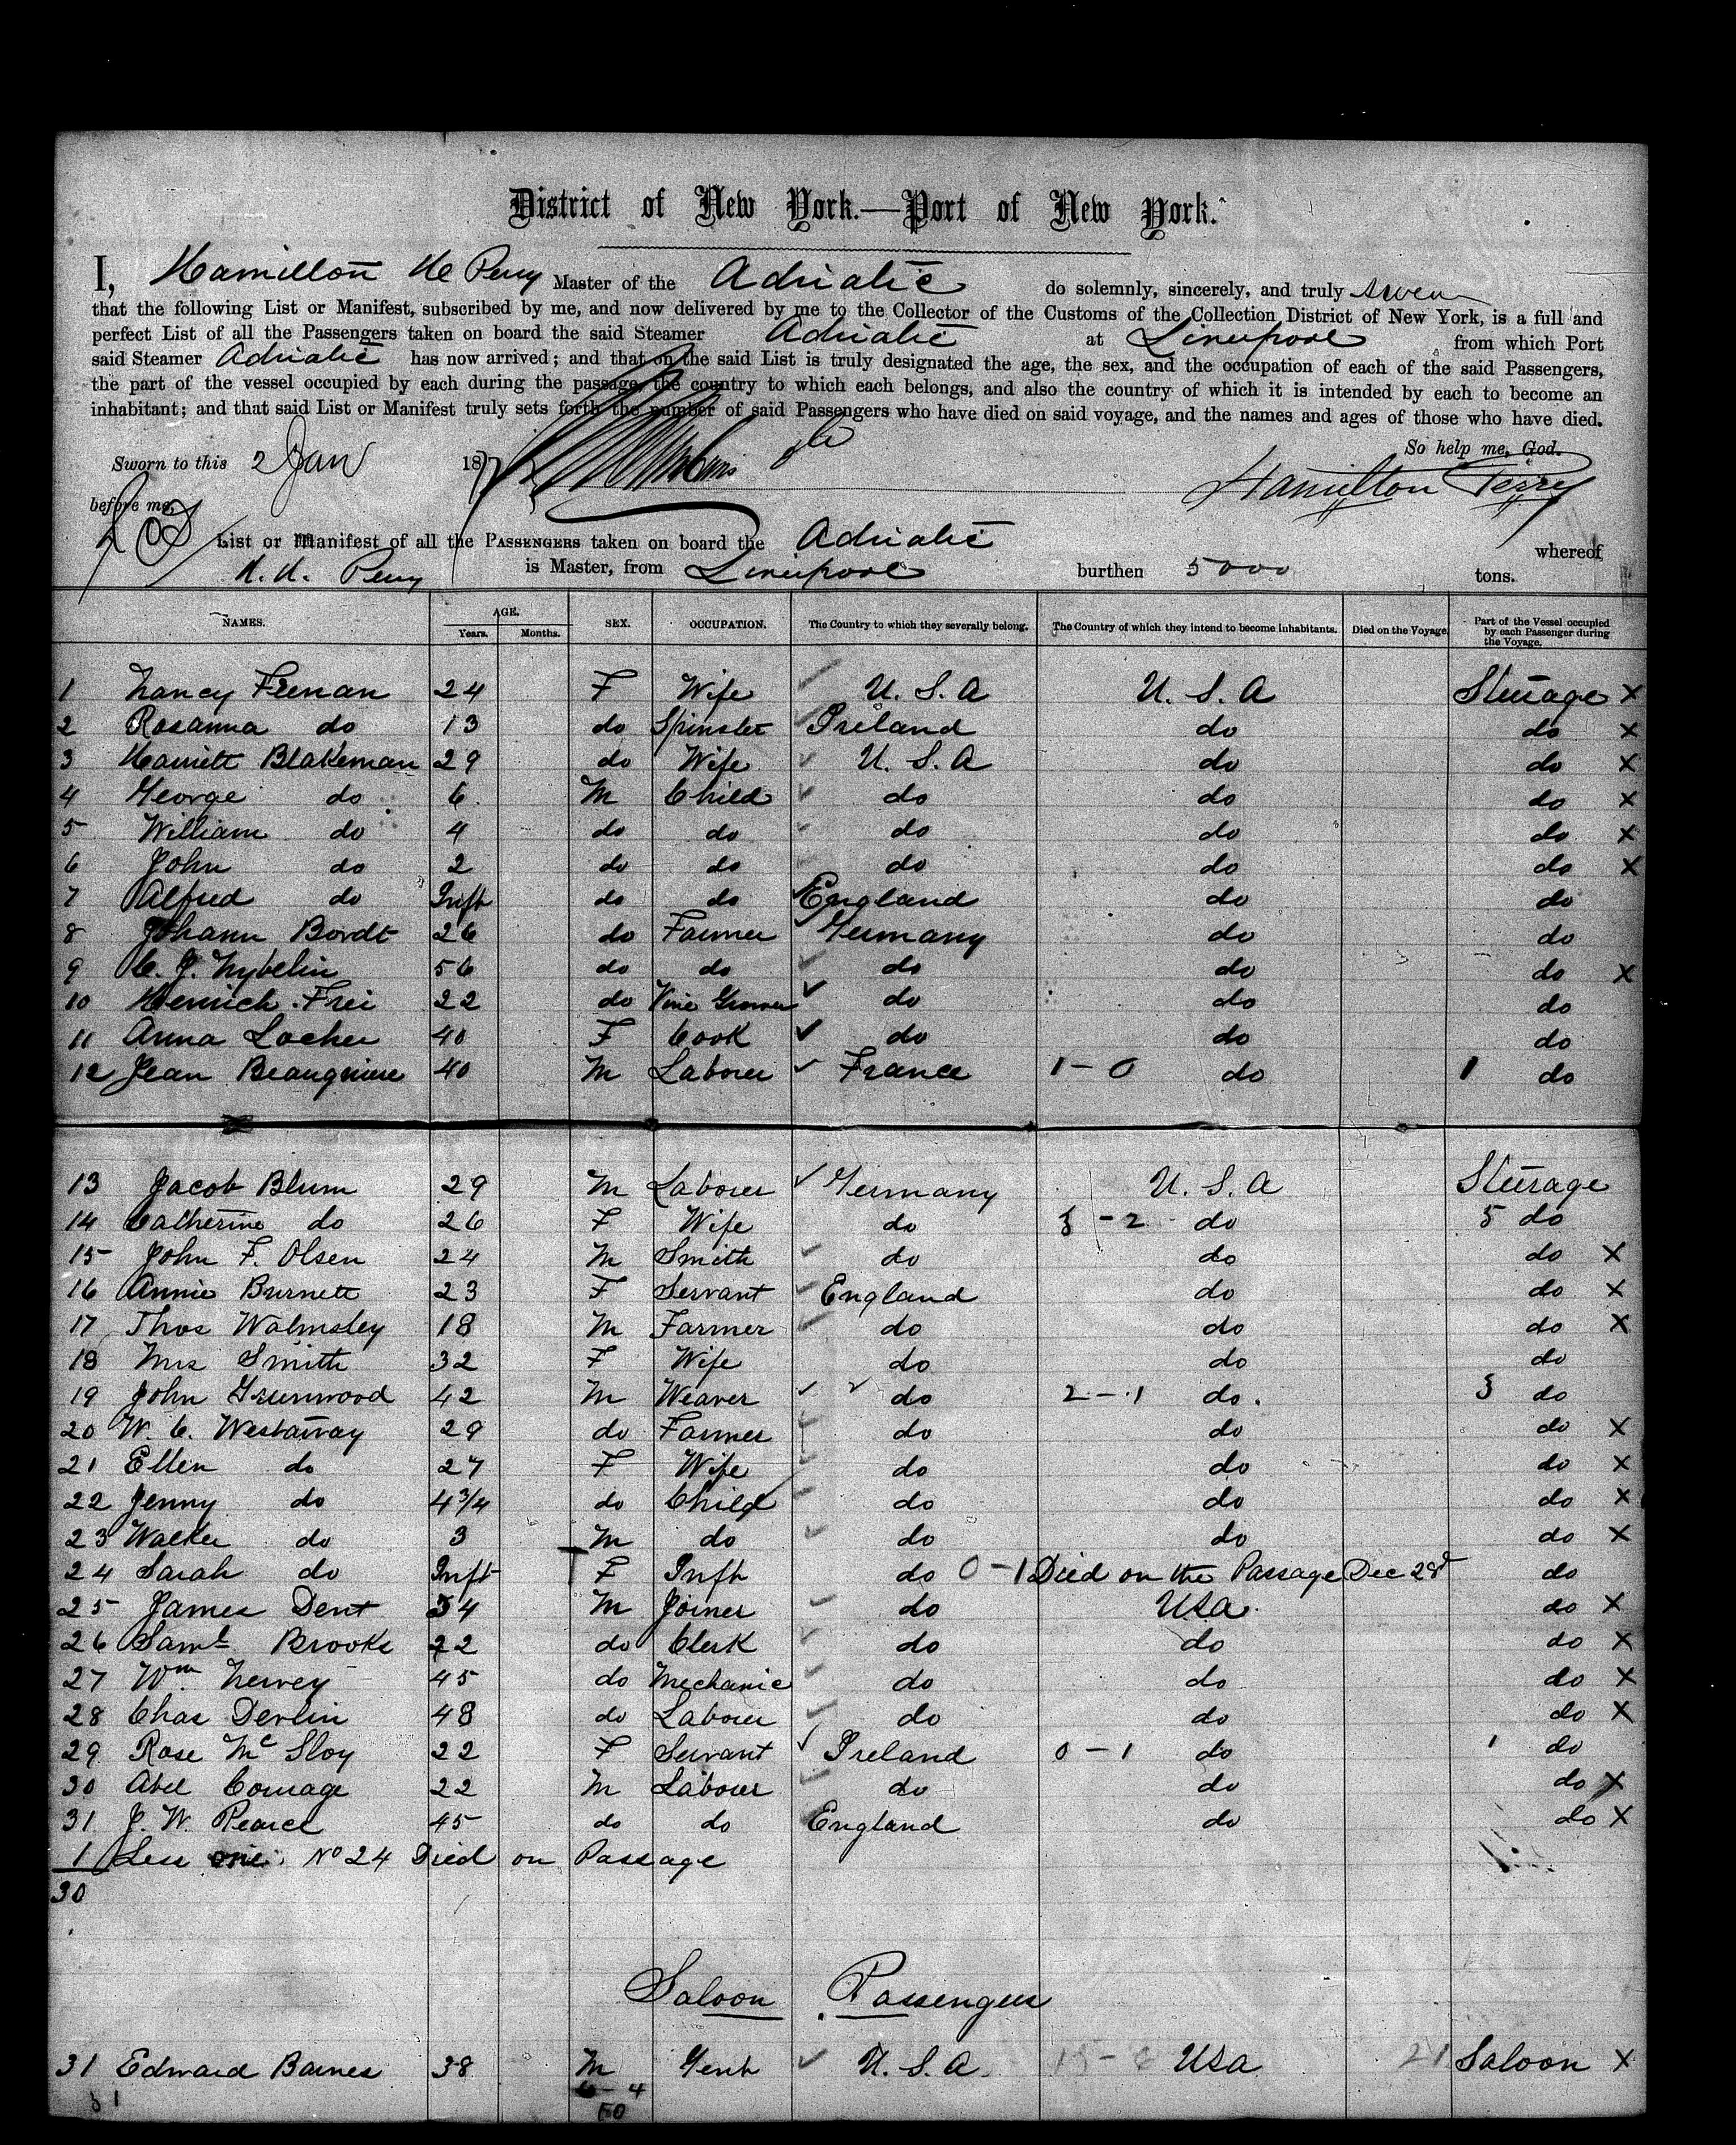 District of New York.—Port of New York.
I, Hamilton H Perry Master of the Adriatic do solemnly, sincerely, and truly swear
that the following List or Manifest, subscribed by me, and now delivered by me to the Collector of the Customs of the Collection District of New York, is a full and
perfect List of all the Passengers taken on board the said Steamer Adriatic at Liverpool from which Port
said Steamer Adriatic has now arrived; and that on the said List is truly designated the age, the sex, and the occupation of each of the said Passengers,
the part of the vessel occupied by each during the passage, the country to which each belongs, and also the country of which it is intended by each to become an
inhabitant; and that said List or Manifest truly sets forth the number of said Passengers who have died on said voyage, and the names and ages of those who have died.
So help me, God.
Sworn to this 2 Jan 187
Hamilton Perry
before me,
List or Manifest of all the PASSENGERS taken on board the Adriatic whereof
H. H. Perry is Master, from Liverpool burthen 5000 tons.
NAMES. AGE. Years. Months. SEX. OCCUPATION. The Country to which they severally belong. The Country of which they intend to become inhabitants. Died on the Voyage. Part of the Vessel occupied by each Passenger during the Voyage.
1 Nancy Feenan 24 F Wife U.S.A U.S.A Steerage X
2 Rosanna do 13 do Spinster Ireland do do X
3 Harriett Blakeman 29 do Wife U.S.A do do X
4 George do 6 M Child do do do X
5 William do 4 do do do do do X
6 John do 2 do do do do do X
7 Alfred do Inft do do England do do
8 Johann Bordt 26 do Farmer Germany do do
9 C. J. Nybelin 56 do do do do do X
10 Henrich Frei 22 do Vine Grower do do do
11 Anna Locher 40 F Cook do do do
12 Jean Beaugniere 40 M Laborer France 1-0 do 1 do
13 Jacob Blum 29 M Laborer Germany U.S.A Steerage
14 Catherine do 26 F Wife do 3-2 do 5 do
15 John F. Olsen 24 M Smith do do do X
16 Annie Burnett 23 F Servant England do do X
17 Thos Walmsley 18 M Farmer do do do X
18 Mrs Smith 32 F Wife do do do
19 John Greenwood 42 M Weaver do 2-1 do. 3 do
20 W. C. Westaway 29 do Farmer do do do X
21 Ellen do 27 F Wife do do do X
22 Jenny do 4 3/4 do Child do do do X
23 Walker do 3 M do do do do X
24 Sarah do Inft F Inft do 0-1 Died on the Passage Dec 28 do
25 James Dent 34 M Joiner do USA do X
26 Saml Brooks 22 do Clerk do do do X
27 Wm Nervey 45 do Mechanic do do do X
28 Chas Devlin 48 do Laborer do do do X
29 Rose McSloy 22 F Servant Ireland 0-1 do 1 do
30 Abel Courage 22 M Laborer do do do X
31 J. W. Pearce 45 do do England do do X
1 Less one No 24 Died on Passage
30
Saloon Passengers
31 Edward Barnes 38 M Gent U.S.A USA 21 Saloon X